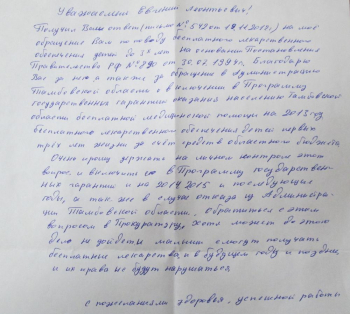 Уважаемый Евгений Леонтьевич!
Получил Ваш ответ (письмо № 542 от 08.11.2012г.) на мое
обращение к Вам по поводу бесплатного лекарственного
обеспечения детей до 3х лет на основании Постановления
Правительства РФ № 890 от 30.07.1994г. Благодарю
Вас за него, а также за обращение в Администрацию
Тамбовской области о включении в Программу
государственных гарантий оказания населению Тамбовской
области бесплатной медицинской помощи на 2013 год
бесплатного лекарственного обеспечения детей первых
трёх лет жизни за счёт средств областного бюджета.
Очень прошу держать на личном контроле этот
вопрос и включении его в Программу государствен-
ных гарантий и на 2014, 2015 и последующие
годы, а так же в случае отказа из Администра-
ции Тамбовской области, обратиться с этим
вопросом в Прокуратуру, хотя может до этого
дело не дойдет и малыши смогут получать
бесплатные лекарства и в будущем году и позднее
и их права не будут нарушаться.
с пожеланиями здоровья, успешной работы